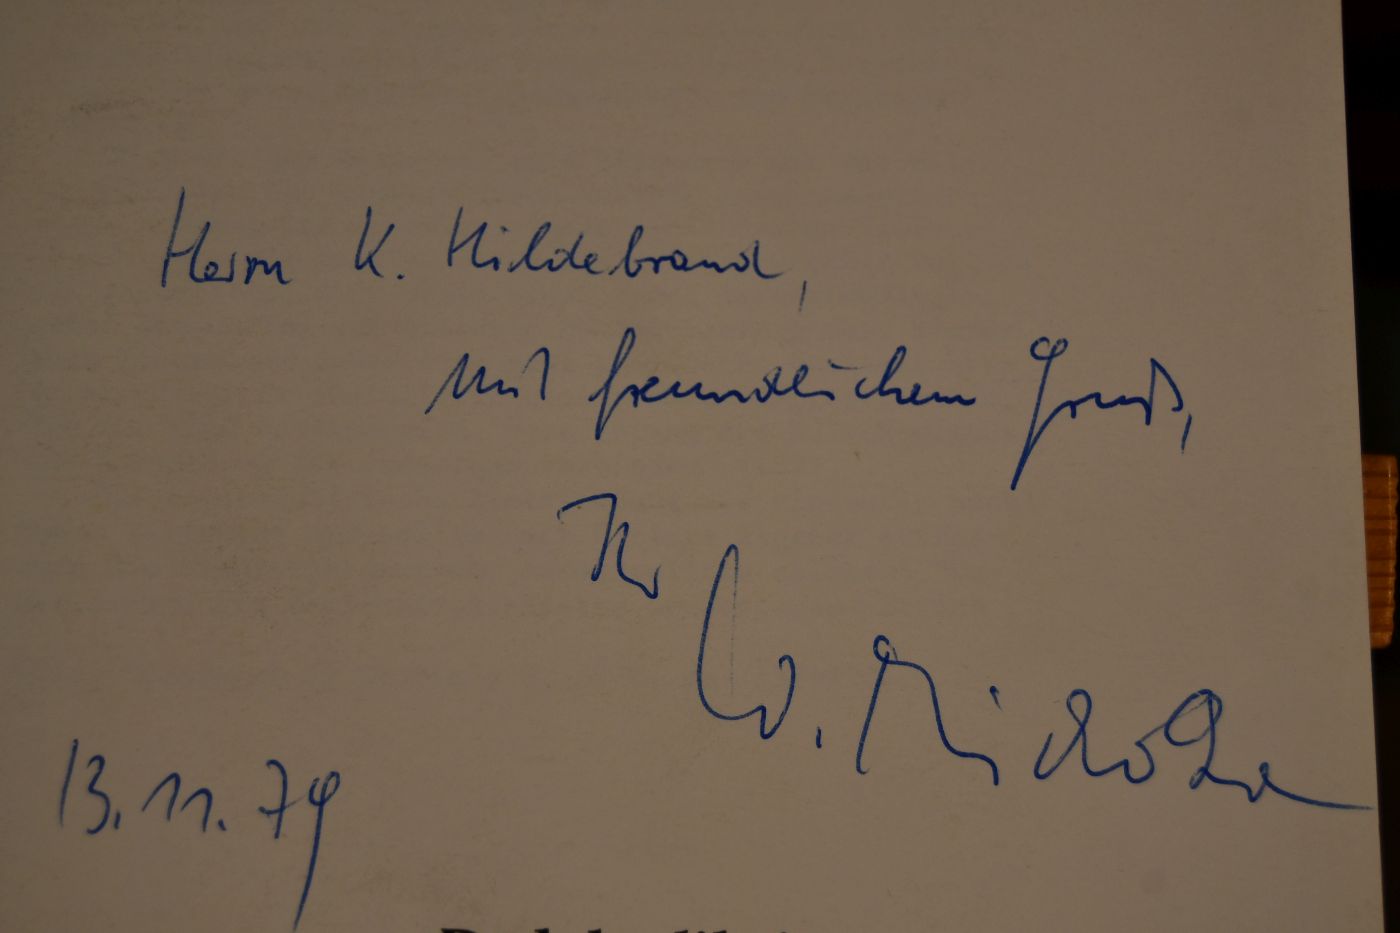 Herrn K. Hildebrand,
mit freundlichem Gruß,
Ihr
W.
13. 11. 79